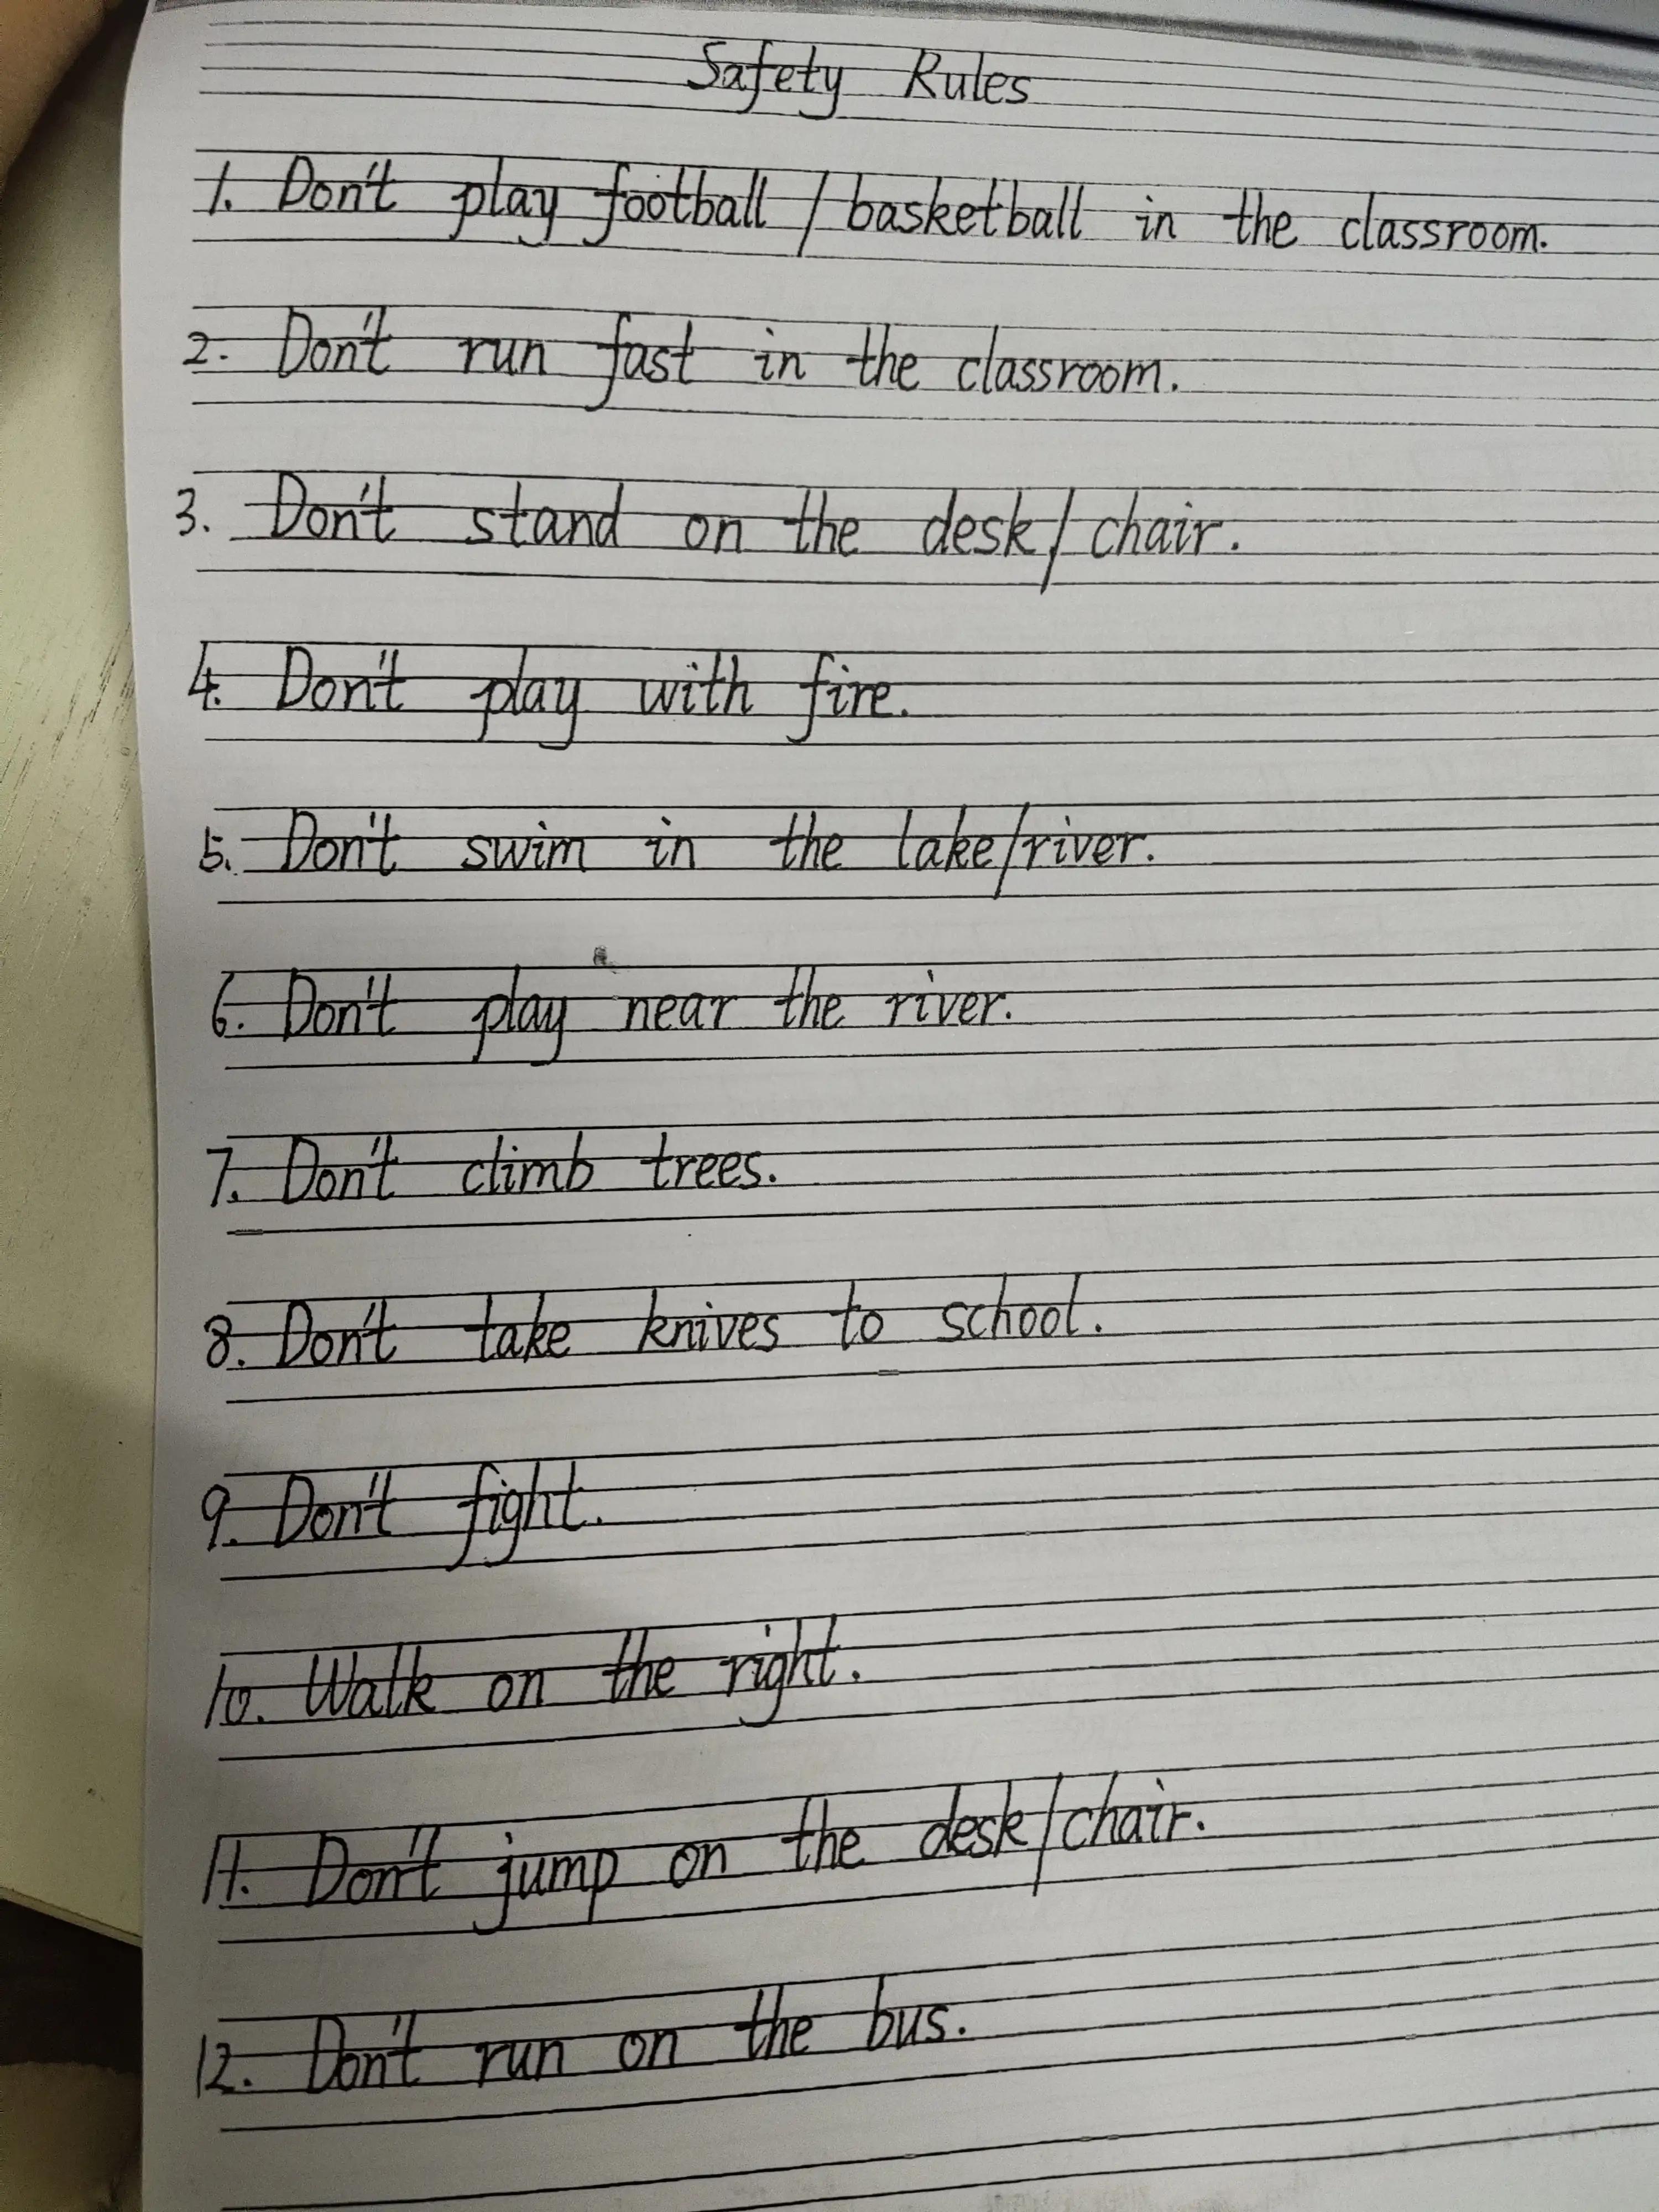 Safety Rules
1. Don't play football / basketball in the classroom.
2. Don't run fast in the classroom.
3. Don't stand on the desk / chair.
4. Don't play with fire.
5. Don't swim in the lake/river.
6. Don't play near the river.
7. Don't climb trees.
8. Don't take knives to school.
9. Don't fight.
10. Walk on the right.
11. Don't jump on the desk/chair.
12. Don't run on the bus.